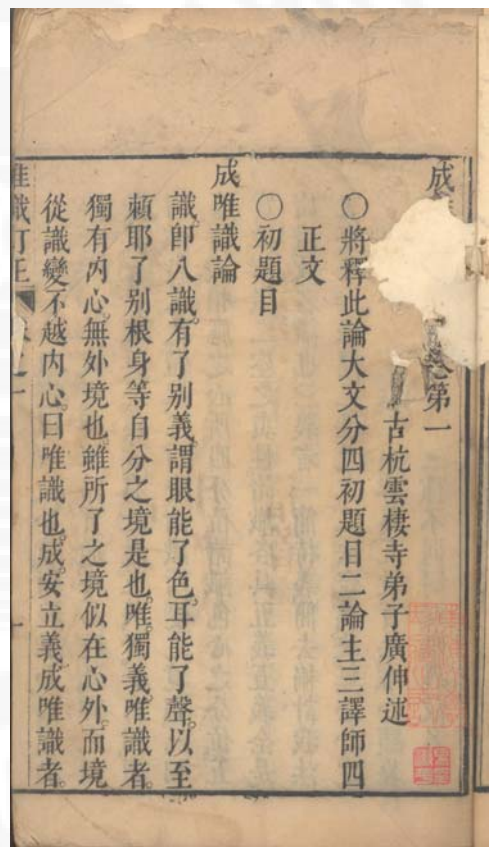 成
卷第一
古杭雲棲寺弟子廣伸述
○將釋此論大文分四初題目二論主三譯師四
正文
○初題目
成唯識論
識卽八識有了別義謂眼能了色耳能了聲以至
賴耶了別根身等自分之境是也唯獨義唯識者
獨有內心無外境也雖所了之境似在心外而境
從識變不越內心曰唯識也成安立義成唯識者
唯識訂正
一